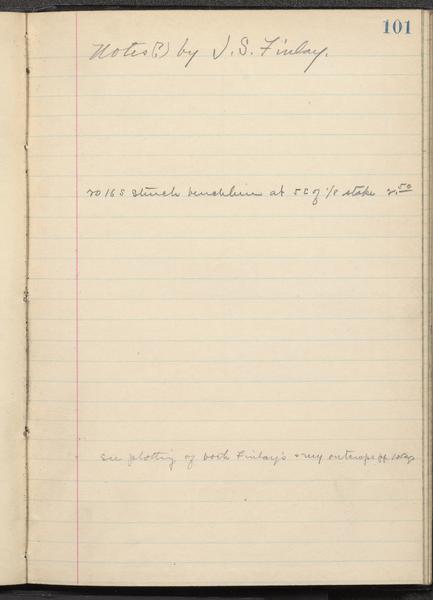 101
Notes(?) by J. S. Finlay.
2016 S struck benchline at 5 E of 1/8 stake 2.50
see plotting of both Finlay's + my outcrops opp.